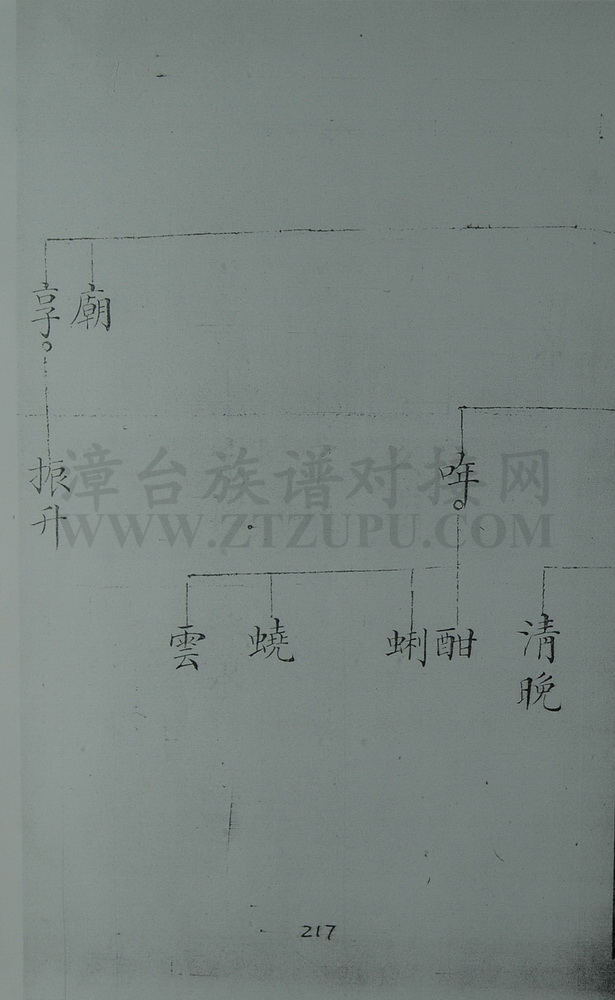 廟
享
哖
振升
漳台族谱对接网
WWW.ZTZUPU.COM
清晚
酣
蜊
蟯
雲
217